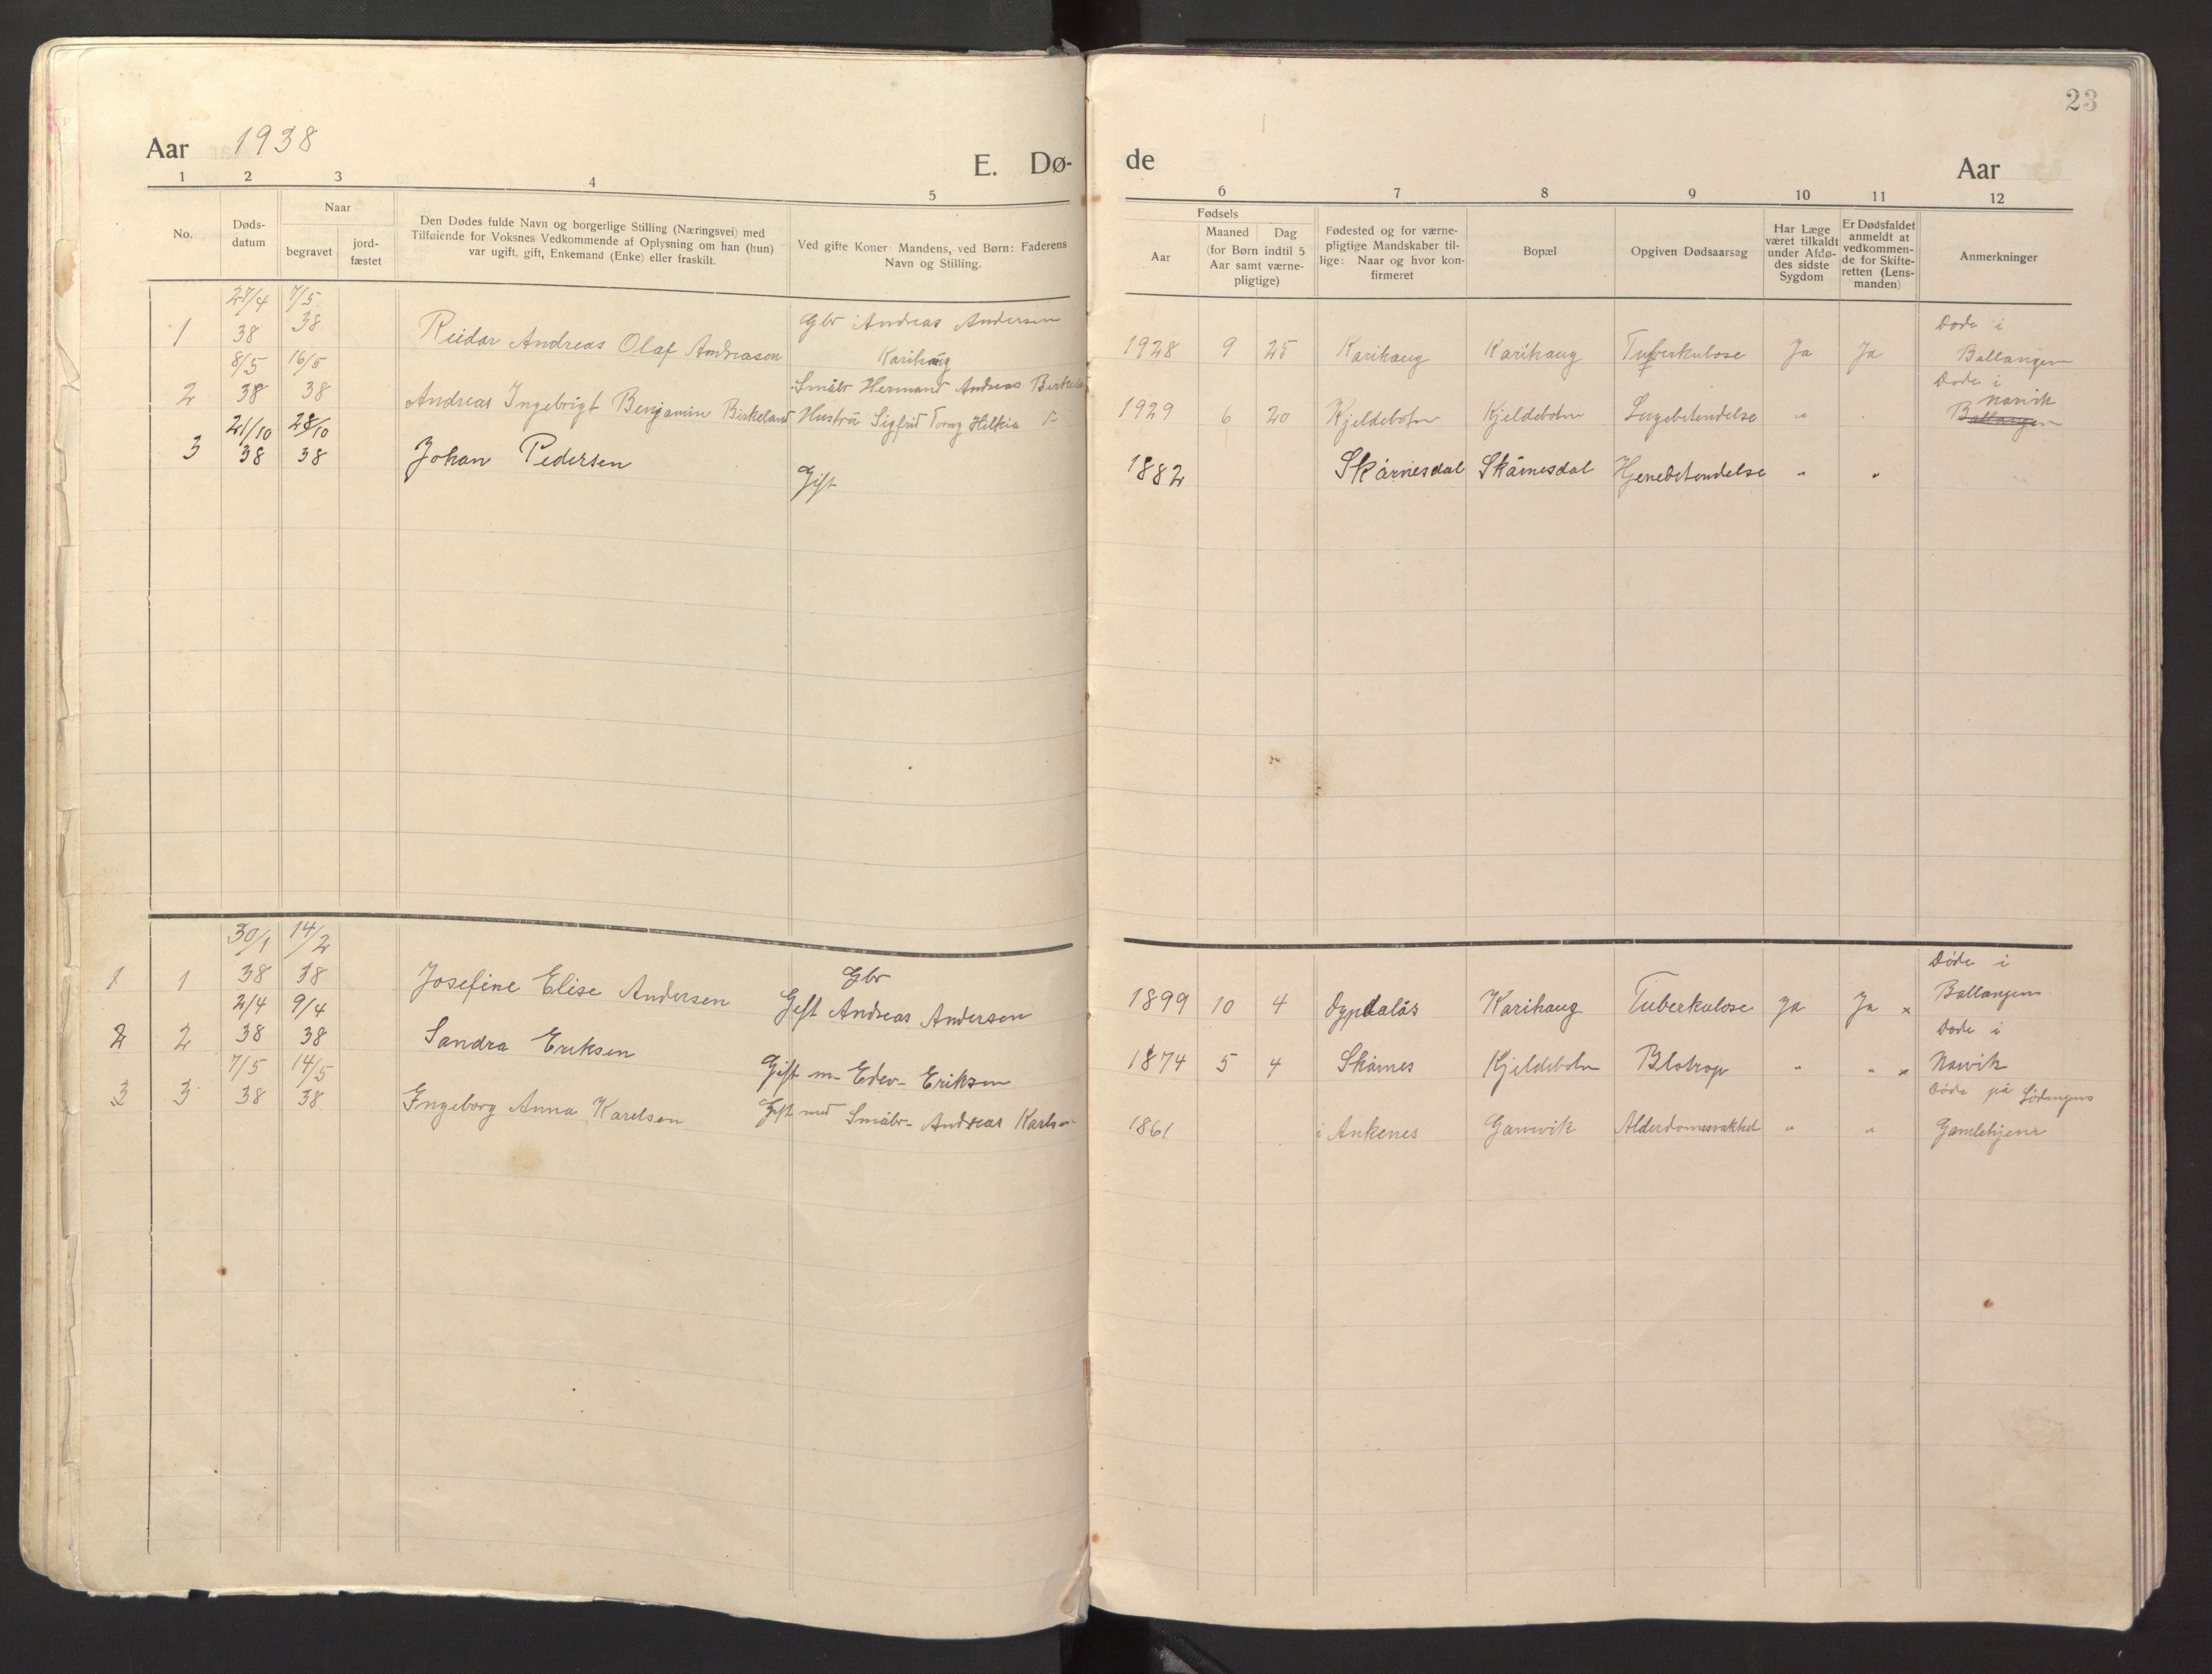 23
Aar 1938
E. Dø-
de
Aar
1 2 3 4 5
6 7 8 9 10 11 12
No.
Døds-
datum
Naar
begravet
jord-
fæstet
Den Dødes fulde Navn og borgerlige Stilling (Næringsvei) med
Tilføiende for Voksnes Vedkommende af Oplysning om han (hun)
var ugift, gift, Enkemand (Enke) eller fraskilt.
Ved gifte Koner: Mandens, ved Børn: Faderens
Navn og Stilling.
Fødsels
Aar
Maaned Dag
(for Børn indtil 5
Aar samt værne-
pligtige)
Fødested og for værne-
pligtige Mandskaber til-
lige: Naar og hvor kon-
firmeret
Bopæl
Opgiven Dødsaarsag
Har Læge
været tilkaldt
under Afdø-
des sidste
Sygdom
Er Dødsfaldet
anmeldt at
vedkommen-
de for Skifte-
retten (Lens-
manden)
Anmerkninger
27/4 7/5
1 38 38 Reidar Andreas Olaf Andreasen
Gbr Andreas Andersen
Karihaug
1928 9 25 Karihaug Karihaug Tuberkulose Ja Ja
Døde i
Ballangen
8/5 16/5
2 38 38 Andreas Ingebrigt Benjamin Birkeland
Småbr Hermand Andreas Birkeland
Hustru Sigfrid Torny Hilkia
1929 6 20 Kjeldebotn Kjeldebotn Lugebetendelse "
Døde i
Narvik
Ballangen
21/10 28/10
3 38 38 Johan Pedersen
Gift
1882 Skårnesdal Skårnesdal Hjenebetendelse " "
30/1 14/2
1 1 38 38 Josefine Elise Andersen
Gbr
Gift Andreas Andersen
1899 10 4 Dypdalås Karihaug Tuberkulose Ja Ja x
Døde i
Ballangen
2/4 9/4
2 2 38 38 Sandra Eriksen
Gift m- Edev- Eriksen
1874 5 4 Skarnes Kjeldebotn Blotrop " " x
Døde i
Narvik
7/5 14/5
3 3 38 38 Ingeborg Anna Karelsen
Gift med Småbr- Andreas Karlsen
1861 i Ankenes Garnvik Alderdomssvakhed " "
Døde på Lødingens
Gamlehjem